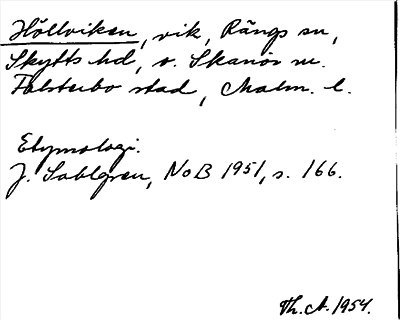 Höllviken, vik, Rängs sn,
Skytts hd, o. Skanör m.
Falsterbo stad, Malm. l.
Etymologi.
J. Sahlgren, NoB 1951, s. 166.
Th. A. 1954.